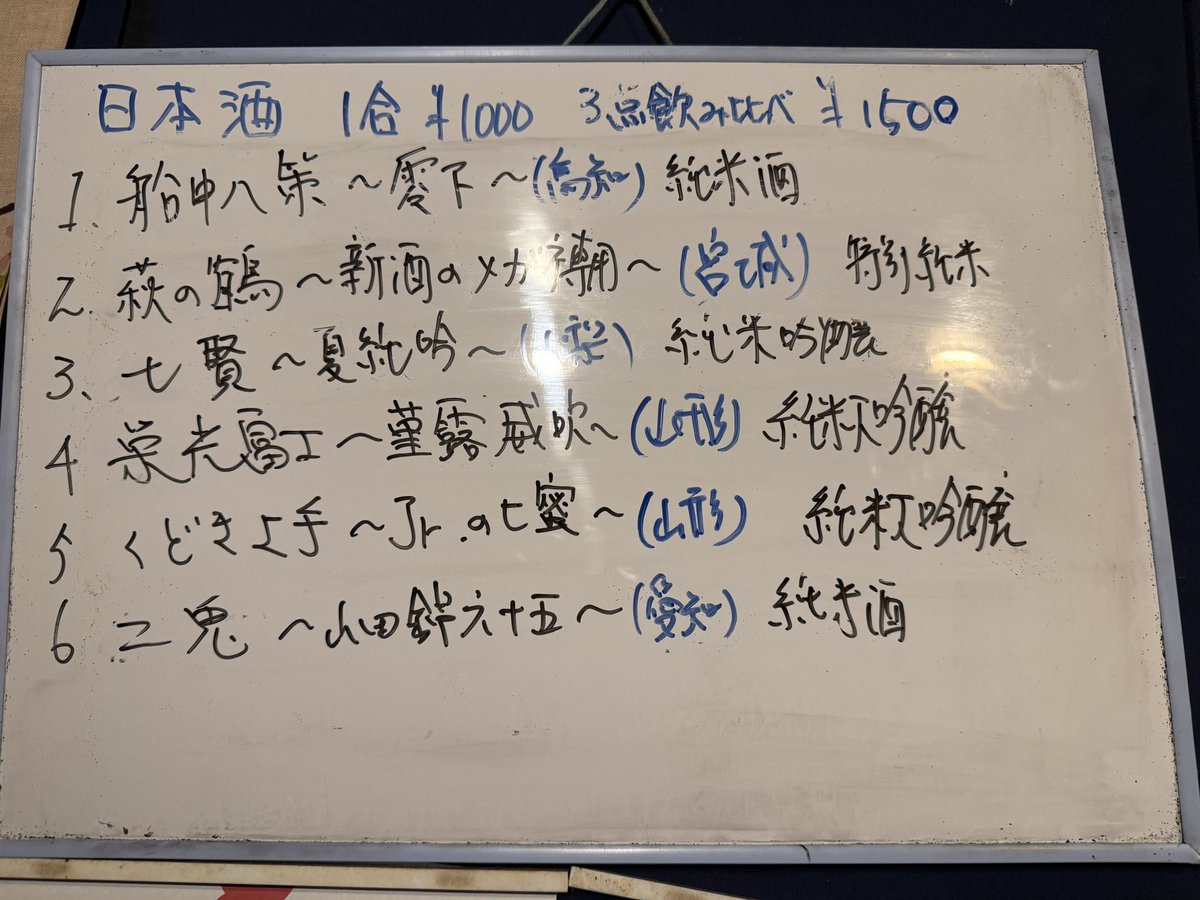 日本酒 1合 ¥1000 3点飲み比べ ¥1500
1、船中八策 ～零下～(高知) 純米酒
2、萩の鶴～新酒のメガネ専用～(宮城) 特別純米
3、七賢～夏純吟～(山梨) 純米吟醸
4 栄光冨士～菫露威吹～(山形) 純米吟醸
5 くどき上手～Jr.の七蜜～(山形) 純米大吟醸
6 二兎 ～山田錦六十五～(愛知) 純米酒